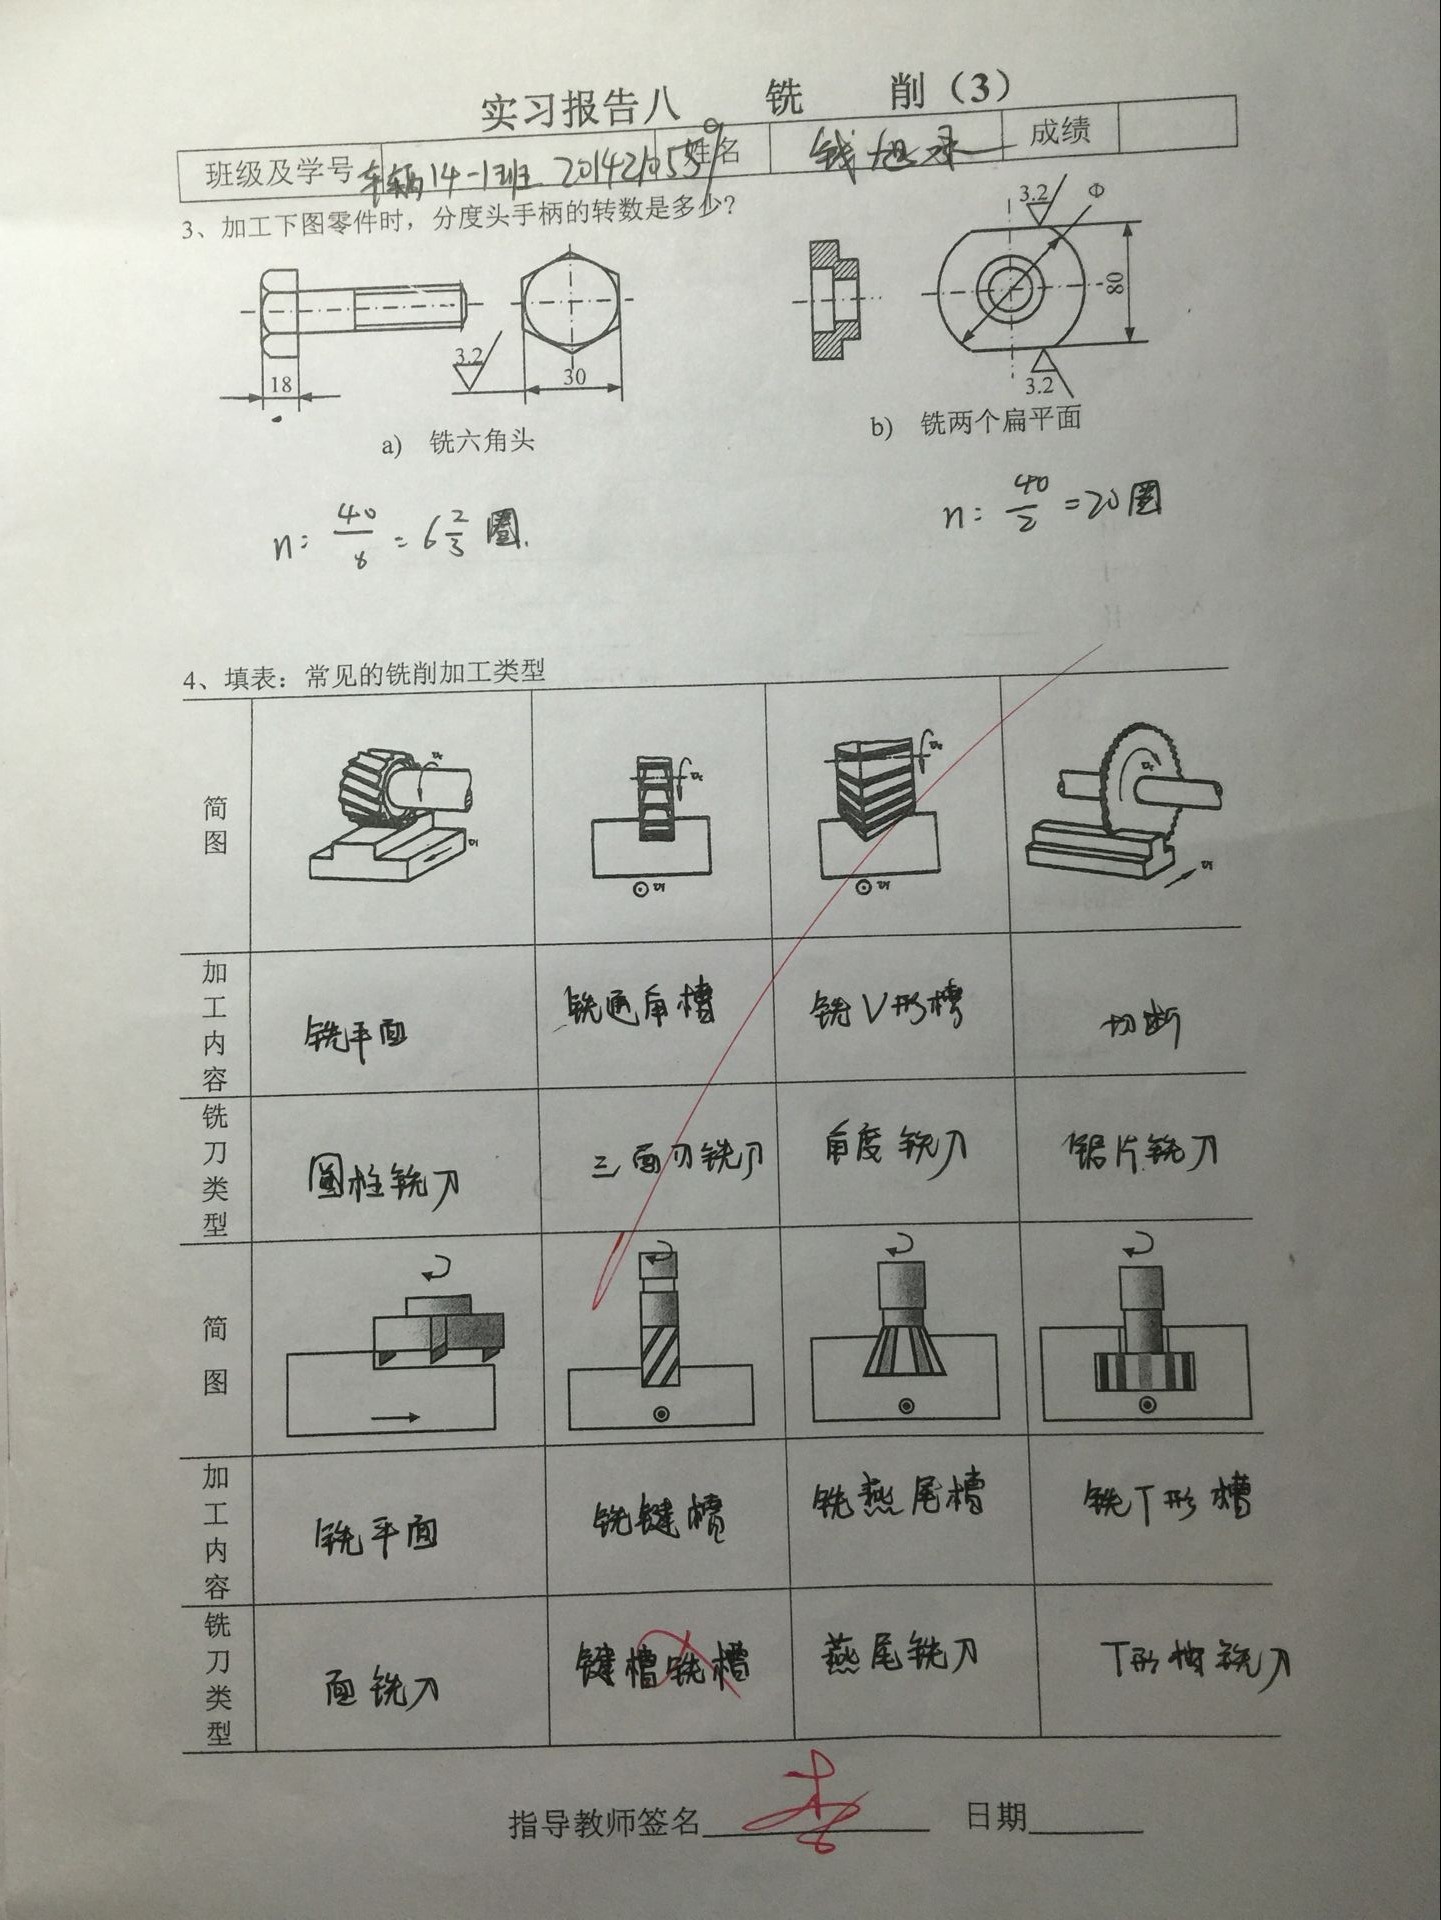 实习报告八 铣 削（3）
班级及学号 车辆14-1班 2014210559 姓名 钱旭 成绩
3、加工下图零件时，分度头手柄的转数是多少？
3.2 Φ
80
3.2 18 30
3.2
a) 铣六角头 b) 铣两个扁平面
n: 40/8 = 6 2/3 圈. n: 40/2 = 20圈
4、填表：常见的铣削加工类型
简图
加工内容 铣平面 铣通角槽 铣V形槽 切断
铣刀类型 圆柱铣刀 三面刃铣刀 角度铣刀 锯片铣刀
简图
加工内容 铣平面 铣键槽 铣燕尾槽 铣T形槽
铣刀类型 面铣刀 键槽铣槽 燕尾铣刀 T形槽铣刀
指导教师签名 日期